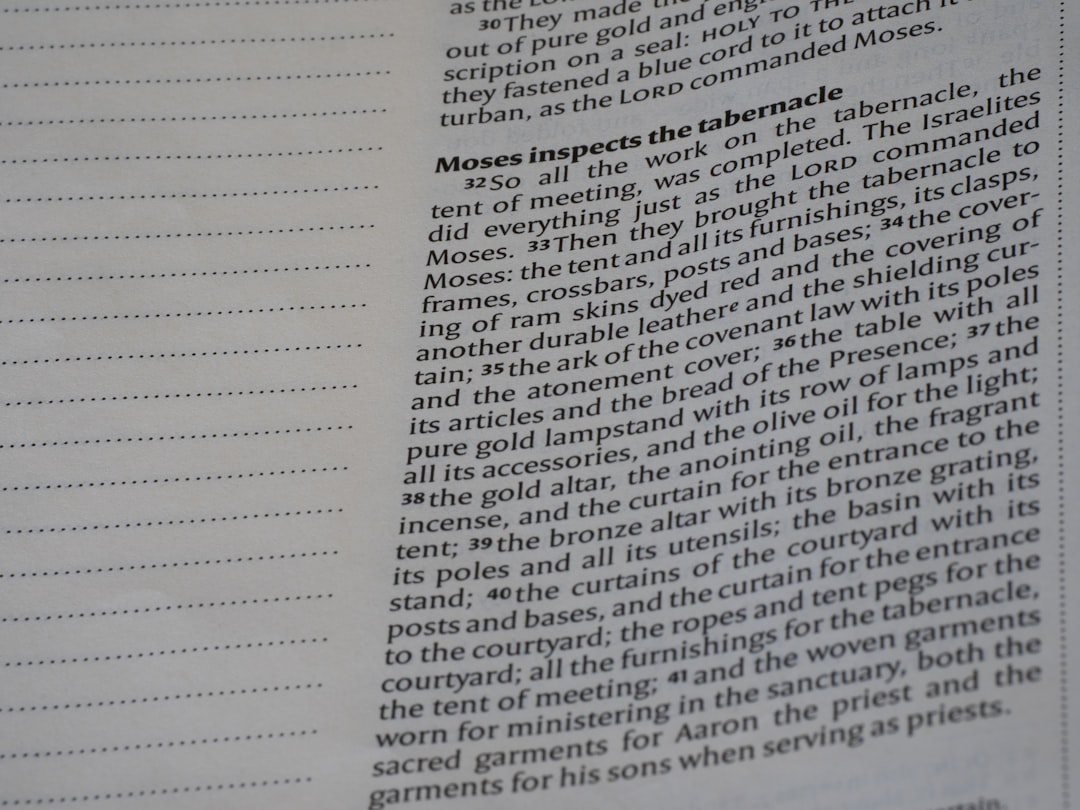 as the LOR
30They made the
out of pure gold and eng
scription on a seal: HOLY TO THE
they fastened a blue cord to it to attach it
turban, as the LORD commanded Moses.
Moses inspects the tabernacle
32So all the work on the tabernacle, the
tent of meeting, was completed. The Israelites
did everything just as the LORD commanded
Moses. 33Then they brought the tabernacle to
Moses: the tent and all its furnishings, its clasps,
frames, crossbars, posts and bases; 34the cover-
ing of ram skins dyed red and the covering of
another durable leathere and the shielding cur-
tain; 35the ark of the covenant law with its poles
and the atonement cover; 36the table with all
its articles and the bread of the Presence; 37the
pure gold lampstand with its row of lamps and
all its accessories, and the olive oil for the light;
38the gold altar, the anointing oil, the fragrant
incense, and the curtain for the entrance to the
tent; 39the bronze altar with its bronze grating,
its poles and all its utensils; the basin with its
stand; 40the curtains of the courtyard with its
posts and bases, and the curtain for the entrance
to the courtyard; the ropes and tent pegs for the
courtyard; all the furnishings for the tabernacle,
the tent of meeting; 41and the woven garments
worn for ministering in the sanctuary, both the
sacred garments for Aaron the priest and the
garments for his sons when serving as priests.